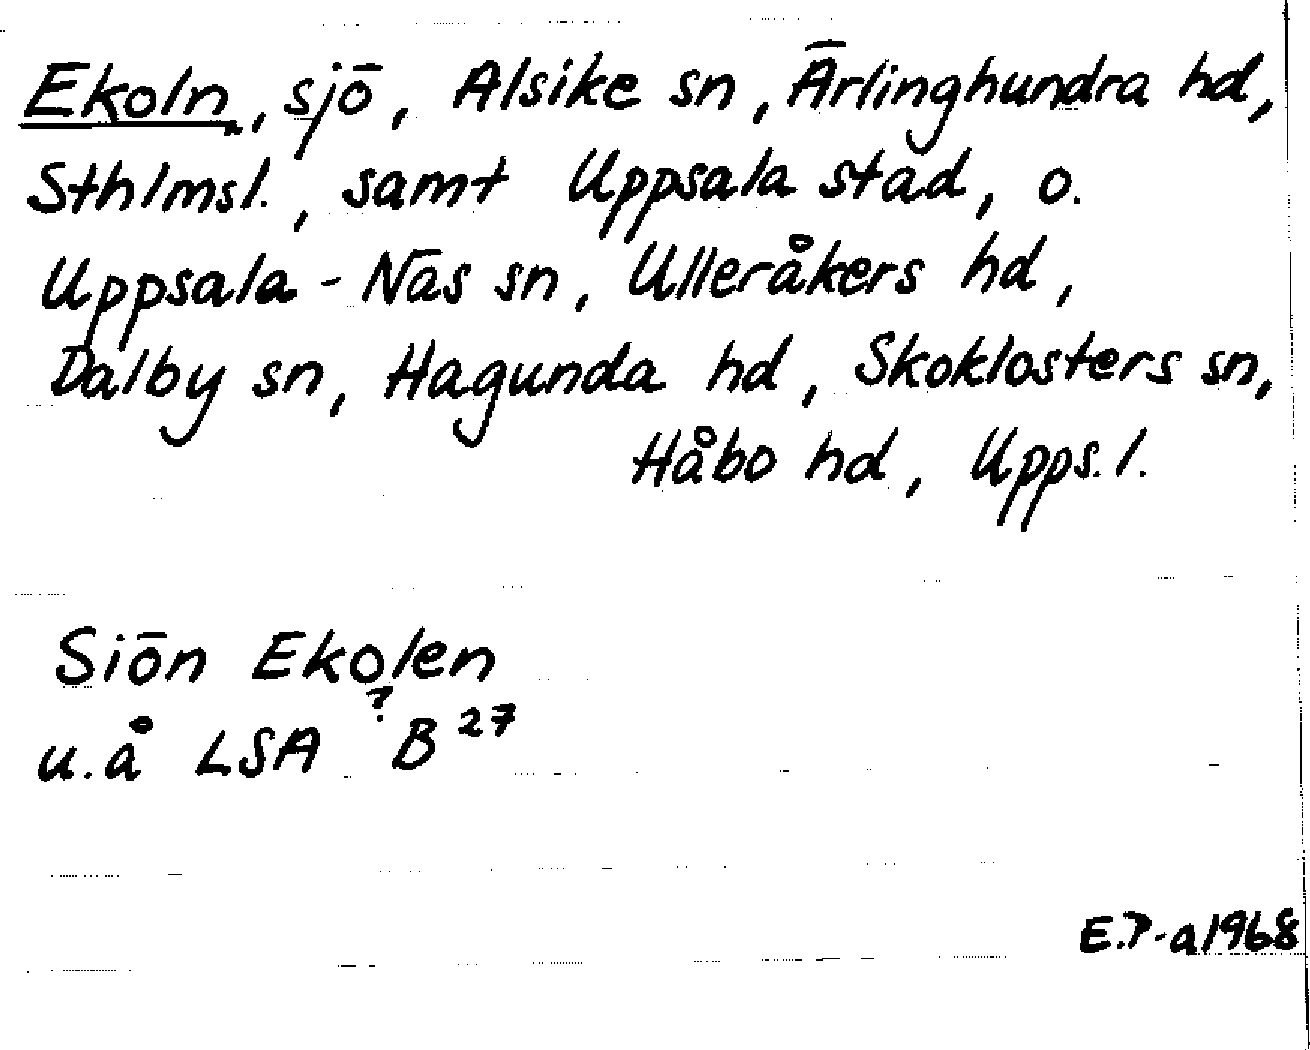 Ekoln, sjö, Alsike sn, Ärlinghundra hd,
Sthlmsl., samt Uppsala stad, o.
Uppsala-Näs sn, Ulleråkers hd,
Dalby sn, Hagunda hd, Skoklosters sn,
Håbo hd, Upps. l.
Siön Ekolen
?
u.å LSA B 27
E.P-a 1968